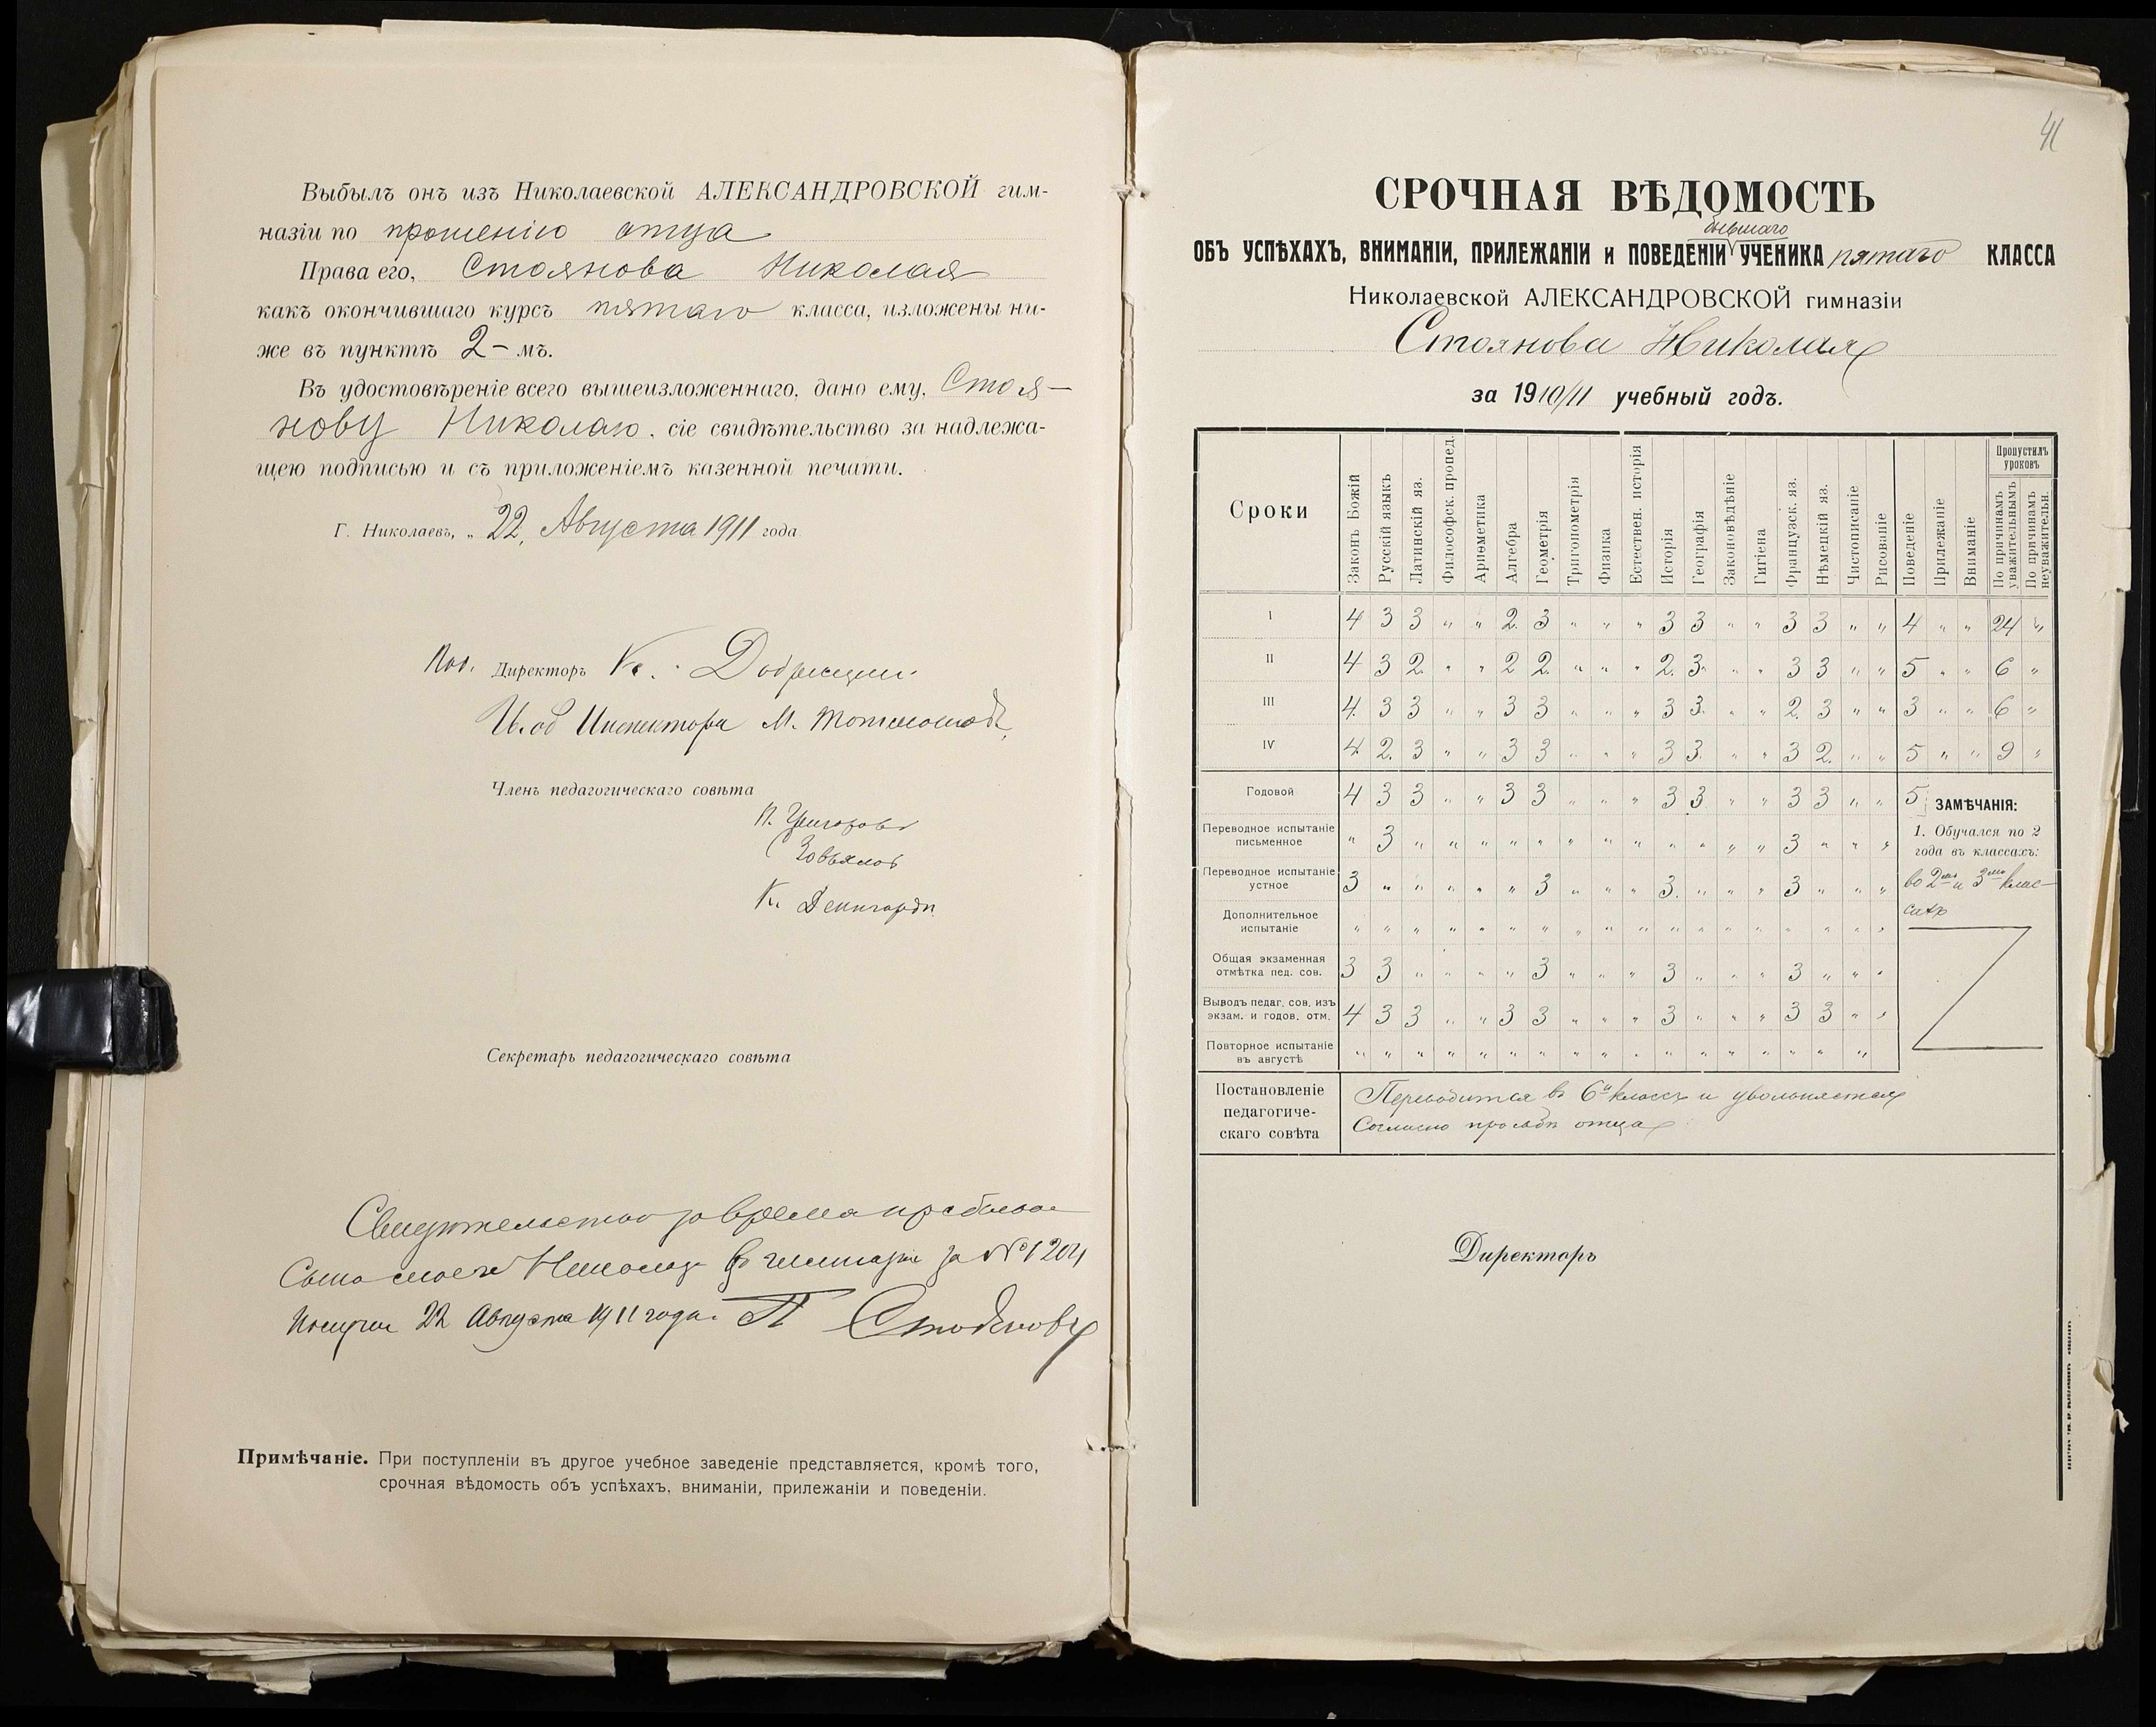 Выбылъ онъ изъ Николаевской АЛЕКСАНДРОВСКОЙ гим-
назіи по прошенію отца
Права его, Стоянова Николая
какъ окончившаго курсъ пятаго класса, изложены ни-
же въ пунктѣ 2-мъ.
Въ удостовѣреніе всего вышеизложеннаго, дано ему, Стоя-
нову Николаю, сіе свидѣтельство за надлежа-
щею подписью и съ приложеніемъ казенной печати.
Г. Николаевъ, „ 22, Августа 1911 года
Директоръ К.
И. об Инспектора М.
Членъ педагогическаго совѣта
К.
Секретарь педагогическаго совѣта
Свидетельство за время пребыва
Сына моего Николая в гимназіи за № 1204
Получил 22 Августа 1911 года. П Стояновъ
Примѣчаніе. При поступленіи въ другое учебное заведеніе представляется, кромѣ того,
срочная вѣдомость объ успѣхахъ, вниманіи, прилежаніи и поведеніи.
41
СРОЧНАЯ ВѢДОМОСТЬ
бывшаго
ОБЪ УСПѢХАХЪ, ВНИМАНІИ, ПРИЛЕЖАНІИ и ПОВЕДЕНІИ УЧЕНИКА пятаго КЛАССА
Николаевской АЛЕКСАНДРОВСКОЙ гимназіи
Стоянова Николая
за 1910/11 учебный годъ.
Сроки
Законъ Божій
Русскій языкъ
Латинскій яз.
Философск. пропед.
Ариѳметика
Алгебра
Геометрія
Тригонометрія
Физика
Естествен. исторія
Исторія
Географія
Законовѣдѣніе
Гигіена
Французск. яз.
Нѣмецкій яз.
Чистописаніе
Рисованіе
Поведеніе
Прилежаніе
Вниманіе
Пропустилъ
уроковъ
По причинамъ
уважительнымъ
По причинамъ
неуважительн.
I 4 3 3 „ „ 2 3 „ „ „ 3 3 „ „ 3 3 „ „ 4 „ „ 24 „
II 4 3 2 „ „ 2 2 „ „ „ 2 3 „ „ 3 3 „ „ 5 „ „ 6 „
III 4 3 3 „ „ 3 3 „ „ „ 3 3 „ „ 2 3 „ „ 3 „ „ 6 „
IV 4 2 3 „ „ 3 3 „ „ „ 3 3 „ „ 3 2 „ „ 5 „ „ 9 „
Годовой 4 3 3 „ „ 3 3 „ „ „ 3 3 „ „ 3 3 „ „ 5
Переводное испытаніе
письменное „ 3 „ „ „ „ „ „ „ „ „ „ „ „ 3 „ „ „
Переводное испытаніе
устное 3 „ „ „ „ „ 3 „ „ „ 3 „ „ „ 3 „ „ „
Дополнительное
испытаніе „ „ „ „ „ „ „ „ „ „ „ „ „ „ „ „ „ „
Общая экзаменная
отмѣтка пед. сов. 3 3 „ „ „ „ 3 „ „ „ 3 „ „ „ 3 „ „ „
Выводъ педаг. сов. изъ
экзам. и годов. отм. 4 3 3 „ „ 3 3 „ „ „ 3 „ „ „ 3 3 „ „
Повторное испытаніе
въ августѣ „ „ „ „ „ „ „ „ „ „ „ „ „ „ „ „ „
ЗАМѢЧАНІЯ:
1. Обучался по 2
года въ классахъ:
во 2мъ и 3мъ клас-
сахъ
Постановленіе
педагогиче-
скаго совѣта
Переводится въ 6й классъ и увольняется
Согласно просьбѣ отца
Директоръ